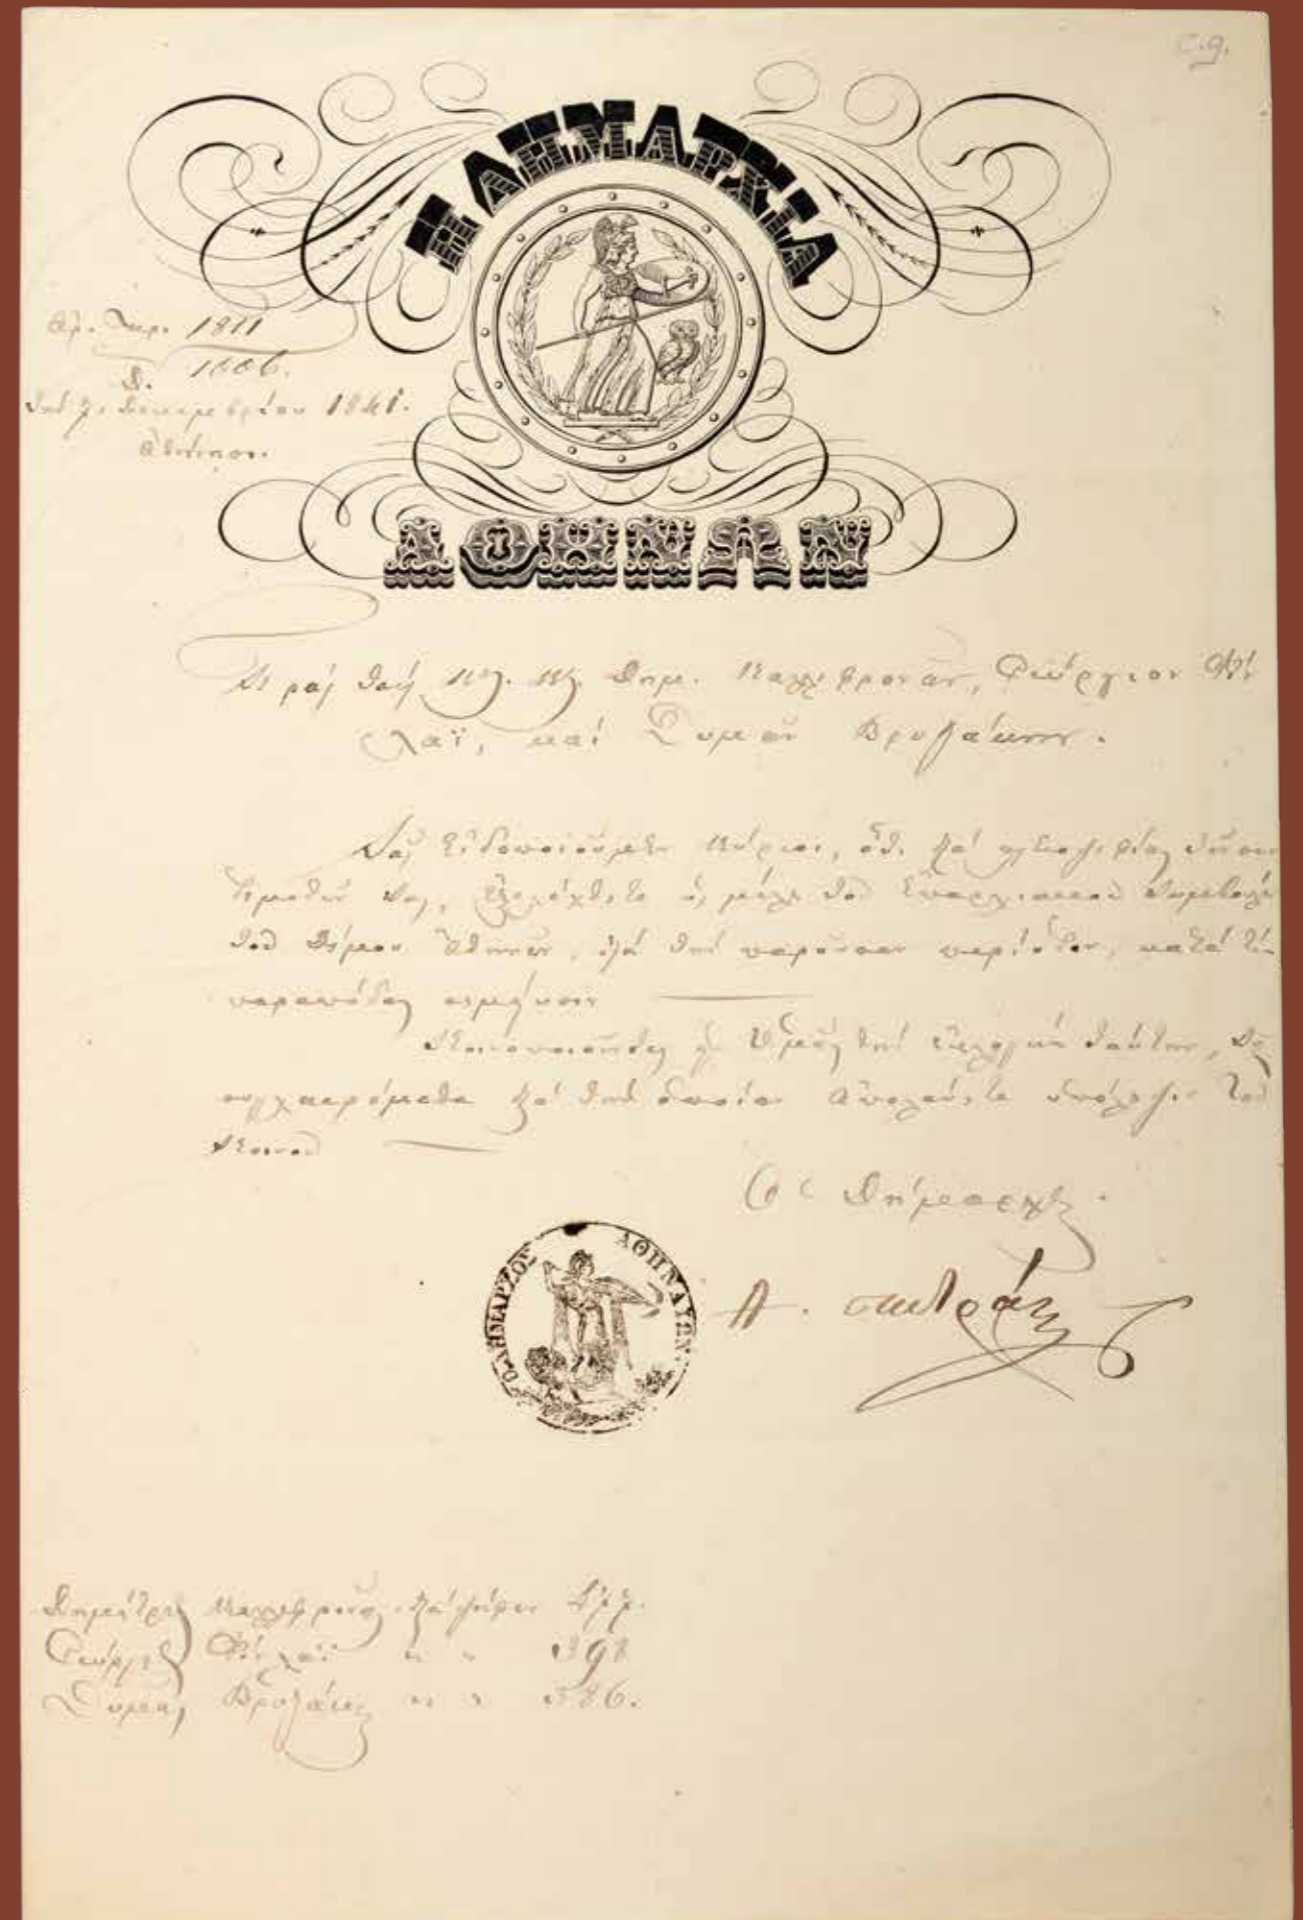 C.9.
Η ΔΗΜΑΡΧΙΑ
Ἀρ. Πρ. 1811
Δ. 1006.
Δεκεμβρίου 1841.
Ἀθήνησι.
ΑΘΗΝΩΝ
Πρὸς τοὺς Κυρ. Κυρ. Δημ. Καλλιφρονᾶν, Γεώργιον Φίν
λαϊ, καὶ Ζυμαν Βρυζάκην.
Σᾶς εἰδοποιοῦμεν Κύριοι, ὅτι διὰ πλειοψηφίας τῶν συν
δημοτῶν σας, ἐξελέχθητε ὡς μέλη τοῦ Ἐπαρχιακοῦ Συμβουλίου
τοῦ Δήμου Ἀθηνῶν, διὰ τὴν παροῦσαν περίοδον, κατὰ τὴν
παραπόδας σημείωσιν
Κοινοποιοῦντες εἰς Ὑμᾶς τὴν ἐκλογὴν ταύτην, Σᾶς
συγχαιρόμεθα διὰ τὴν ὁποίαν ἀπολαύετε ὑπόληψιν τοῦ
Κοινοῦ
Ὁ Δήμαρχος.
Ο ΔΗΜΑΡΧΟΣ ΑΘΗΝΑΙΩΝ
Δημήτριος Καλλιφρονᾶς διὰ ψήφων
Γεώργιος Φίνλαϊ " " 398
Βρυζάκης " " 386.